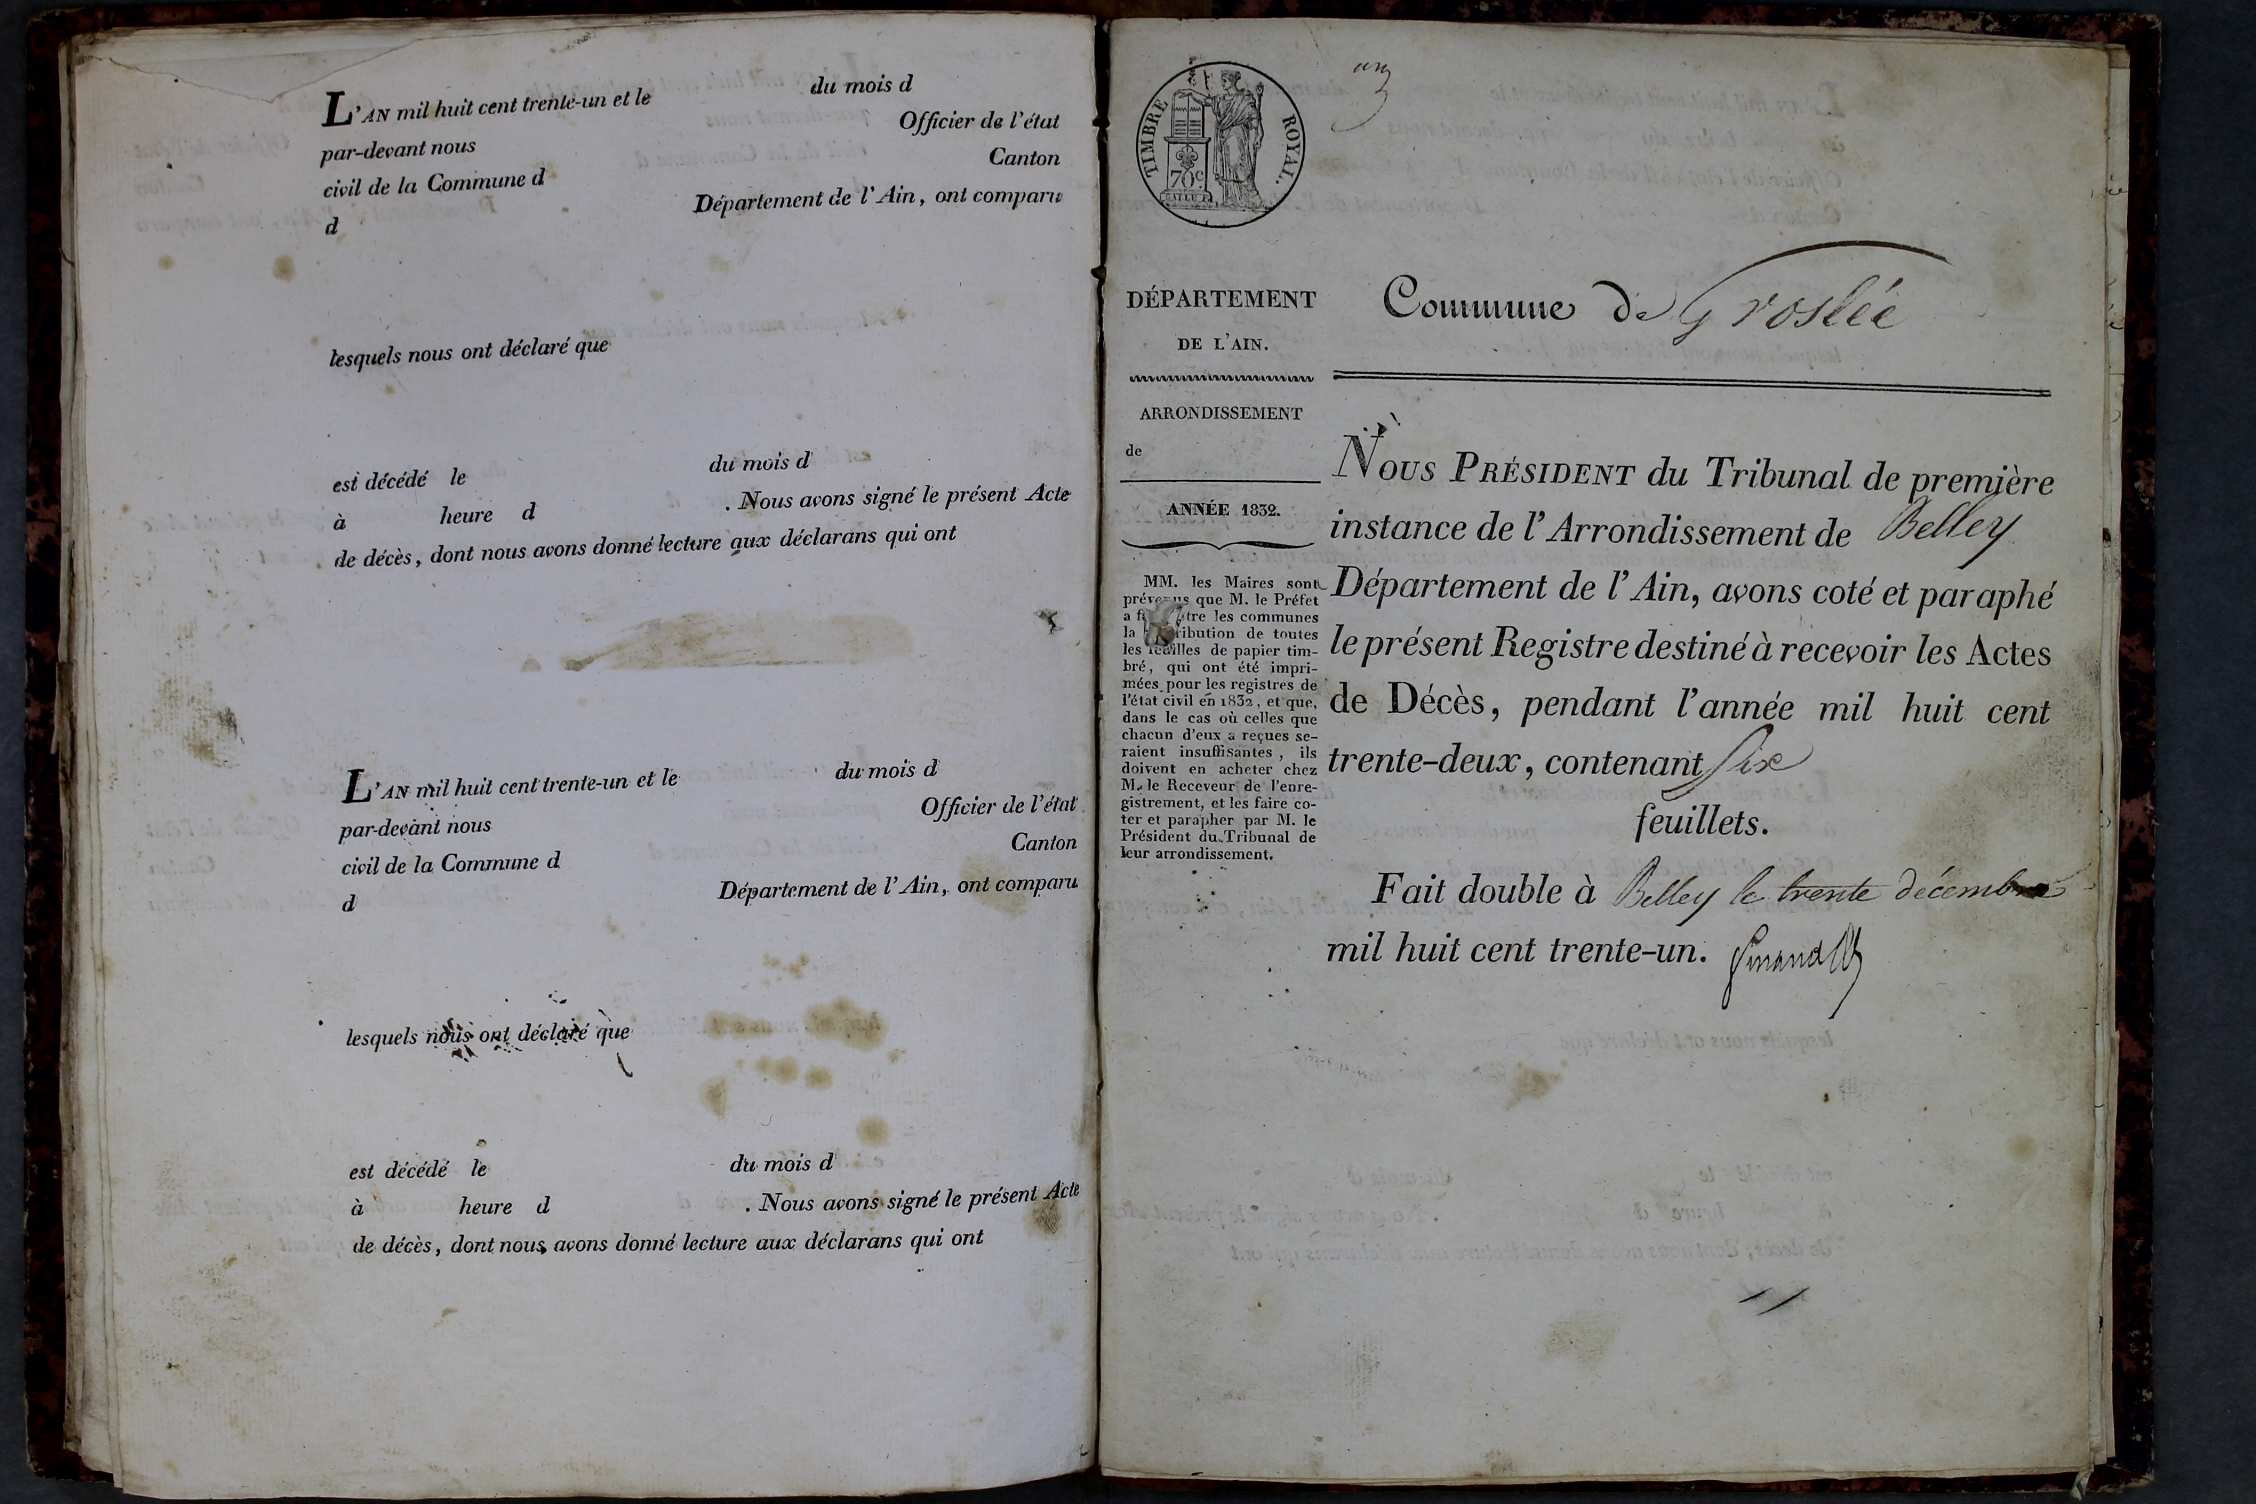 L'AN mil huit cent trente-un et le du mois d
par-devant nous Officier de l'état
civil de la Commune d Canton
d Département de l'Ain, ont comparu
lesquels nous ont déclaré que
est décédé le du mois d
à heure d . Nous avons signé le présent Acte
de décès, dont nous avons donné lecture aux déclarans qui ont
L'AN mil huit cent trente-un et le du mois d
par-devant nous Officier de l'état
civil de la Commune d Canton
d Département de l'Ain, ont comparu
lesquels nous ont déclaré que
est décédé le du mois d
à heure d . Nous avons signé le présent Acte
de décès, dont nous avons donné lecture aux déclarans qui ont
TIMBRE ROYAL.
70c
DÉPARTEMENT
DE L'AIN.
ARRONDISSEMENT
de
ANNÉE 1832.
MM. les Maires sont
prévenus que M. le Préfet
a tre les communes
la ribution de toutes
les feuilles de papier tim-
bré, qui ont été impri-
mées pour les registres de
l'état civil en 1832, et que,
dans le cas où celles que
chacun d'eux a reçues se-
raient insuffisantes, ils
doivent en acheter chez
M. le Receveur de l'enre-
gistrement, et les faire co-
ter et parapher par M. le
Président du Tribunal de
leur arrondissement.
Commune de Groslée
NOUS PRÉSIDENT du Tribunal de première
instance de l'Arrondissement de Belley
Département de l'Ain, avons coté et paraphé
le présent Registre destiné à recevoir les Actes
de Décès, pendant l'année mil huit cent
trente-deux, contenant Six
feuillets.
Fait double à Belley le trente décembre
mil huit cent trente-un.